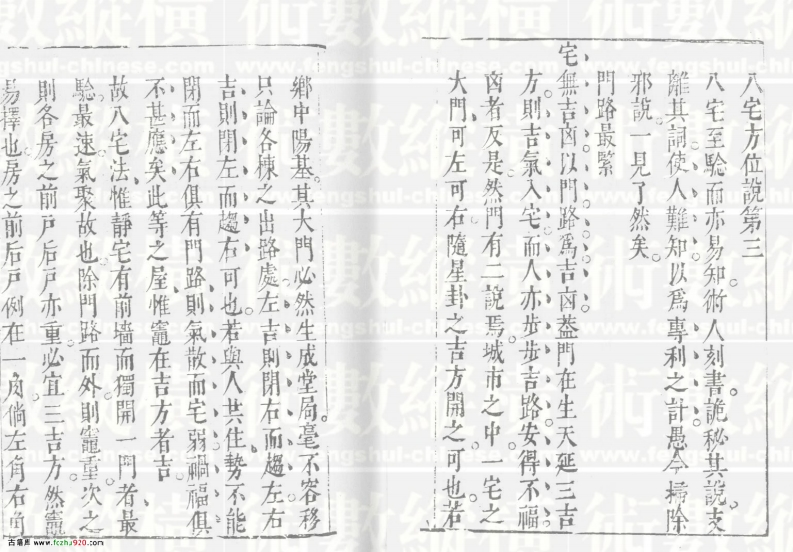 八宅方位說第三
八宅至驗而亦易知術人刻書詭秘其說支
離其詞使人難知以為專利之計愚今掃除
邪說一見了然矣
門路最緊
宅無吉凶以門路為吉凶葢門在生天延三吉
方則吉氣入宅而人亦步步吉路安得不福
凶者反是然門有二說焉城市之中一宅之
大門可左可右隨星卦之吉方開之可也若
鄉中陽基其大門必然生成堂局毫不容移
只論各棟之出路處左吉則閉右而趨左右
吉則閉左而趨右可也若與人共住勢不能
閉而左右俱有門路則氣散而宅弱禍福俱
不甚應矣此等之屋惟竈在吉方者吉
故八宅法惟靜宅有前墻而獨開一門者最
驗最速氣聚故也除門路而外則竈重次之
則各房之前戶后戶亦重必宜三吉方然竈
易擇也房之前后戶例在一角倘左角右角
術數縱橫
www.fengshui-chinese.com
古籍库 www.fczhu920.com